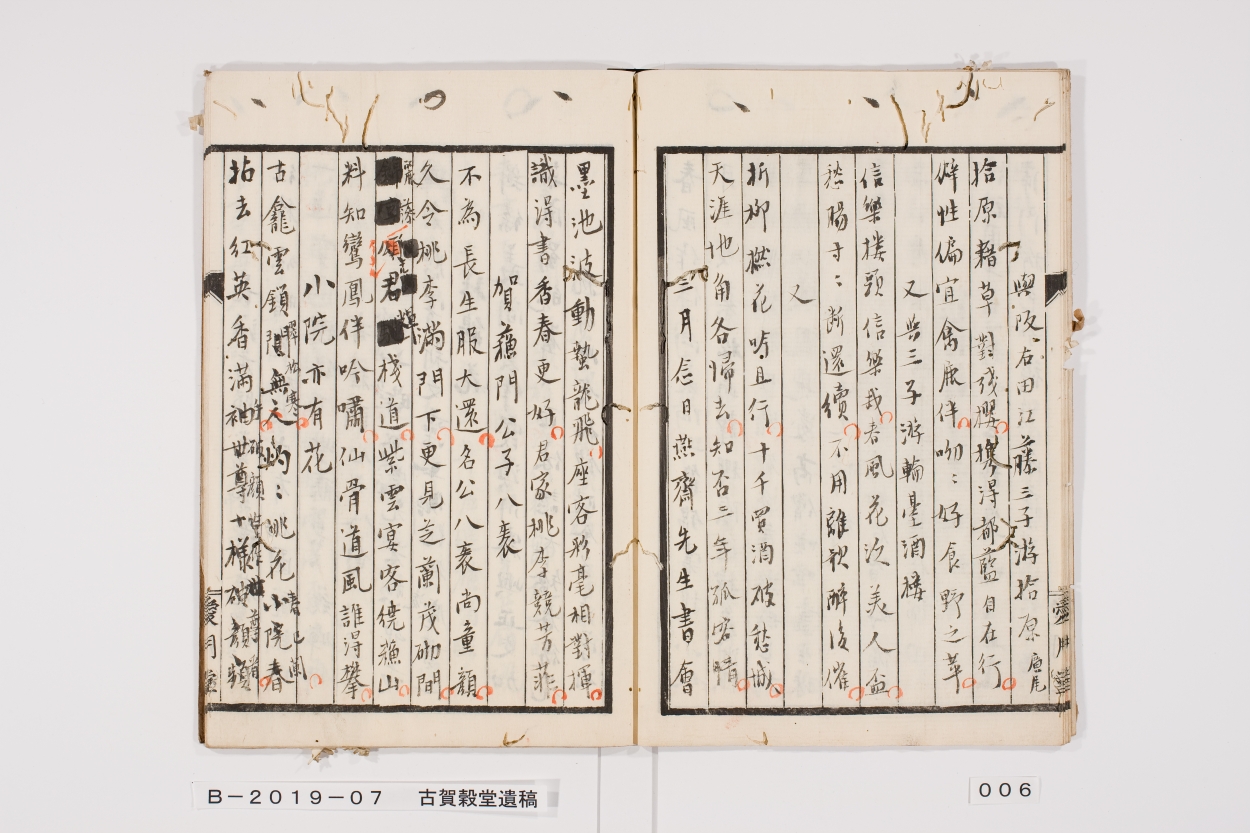 與阪右田江藤三子游拾原
拾原藉草對残櫻携得都藍自在行
僻性偏宜禽鹿伴呦〻好食野之苹
又与三子游輪臺酒楼
信樂楼頭信樂哉春風花次美人盃
愁腸寸〻断還續不用離歌醉後催
又
折柳撚花時且行十千買酒破愁城
天涯地角各帰去知否三年孤客情
三月念日燕齋先生書會
墨池波動蟄龍飛座客彩毫相對揮
識得書香春更好君家桃李競芳菲
賀蘓門公子八袠
不為長生服大還名公八袠尚童顔
久令桃李滿門下更見芝蘭茂砌間
君棧道紫雲宴客繞蘓山
料知鸞鳳伴吟嘯仙骨道風誰得攀
小院亦有花
古龕雲鎖無人灼〻桃花小院春
拈去紅英香滿袖世尊十様破顔
愛月堂
B－2019－07　古賀穀堂遺稿
006